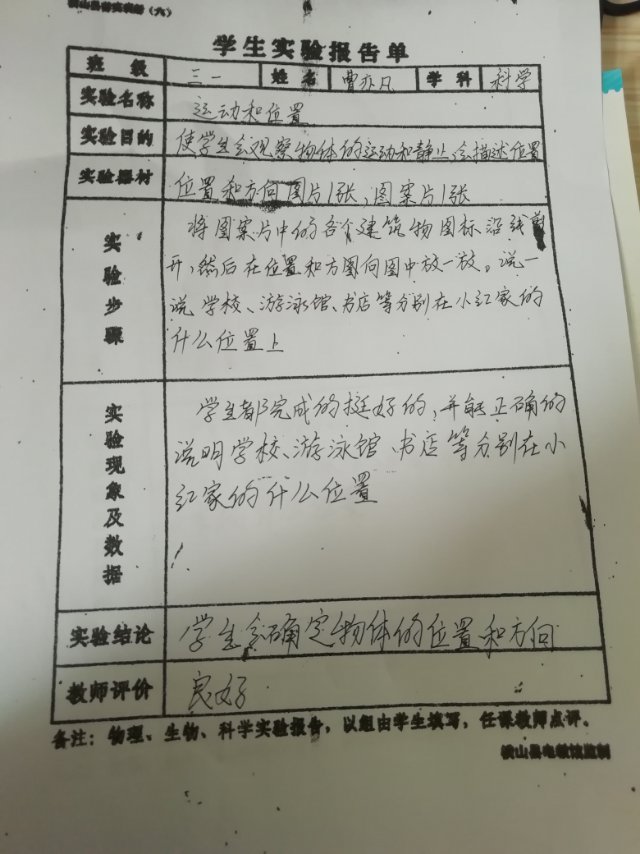 横山县教育教研(六)
学生实验报告单
班级 三一 姓名 曹亦凡 学科 科学
实验名称 运动和位置
实验目的 使学生会观察物体的运动和静止,会描述位置
实验器材 位置和方向图片1张,图案片1张
实验步骤
将图案片中的各个建筑物图标沿线剪
开,然后在位置和方图向图中放一放。说一
说学校、游泳馆、书店等分别在小红家的
什么位置上
实验现象及数据
学生都完成的挺好的,并能正确的
说明学校、游泳馆、书店等分别在小
红家的什么位置
实验结论 学生会确定物体的位置和方向
教师评价 良好
备注:物理、生物、科学实验报告,以组由学生填写,任课教师点评。
横山县电教馆监制